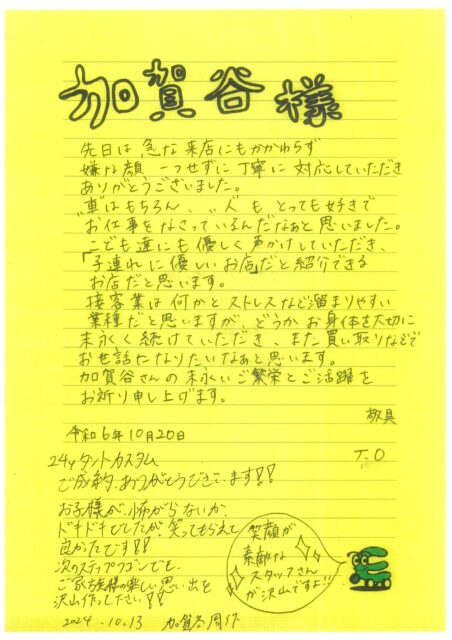 加賀谷様
先日は 急な来店にもかかわらず
嫌な顔一つせずに丁寧に対応していただき
ありがとうございました。
"車"はもちろん、"人"も とっても好きで
お仕事をなさっているんだなぁと思いました。
こども達にも優しく声かけしていただき、
「子連れに優しいお店」だと紹介できる
お店だと思います。
接客業は何かとストレスなど溜まりやすい
業種だと思いますが、どうかお身体を大切に
末永く続けていただき、また買い取りなどで
お世話になりたいなぁと思います。
加賀谷さんの末永いご繁栄とご活躍を
お祈り申し上げます。
敬具
令和6年10月20日
T.O
24yタントカスタム
ご成約ありがとうございます!!
お子様が怖がらないか
ドキドキでしたが、笑ってもらえて
良かったです!!
次のステップワゴンでも
ご家族様の楽しい思い出を
沢山作って下さい!!
2024.10.13 加賀谷
笑顔が
素敵な
スタッフさん
が沢山ですよ!!